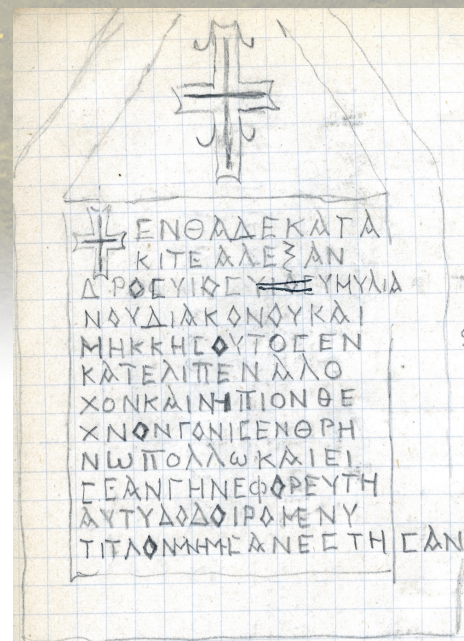 ΕΝΘΑΔΕΚΑΤΑ
ΚΙΤΕΑΛΕΞΑΝ
ΔΡΟCΥΙΟCΥΜΥΛΙΑ
ΝΟΥΔΙΑΚΟΝΟΥΚΑΙ
ΜΗΚΚΗCΟΥΤΟCΕΝ
ΚΑΤΕΛΙΠΕΝΑΛΟ
ΧΟΝΚΑΙΝΗΠΙΟΝΘΕ
ΧΝΟΝΓΟΝΙCΕΝΘΡΗ
ΝΩΠΟΛΛΩΚΑΙΕΙ
CΕΑΝΓΗΝΕΦΟΡΕΥΤΗ
ΑΥΤΥΔΟΔΟΙΡΟΜΕΝΥ
ΤΙΤΛΟΝΜΝΗΜΗCΑΝΕCΤΗCΑΝ